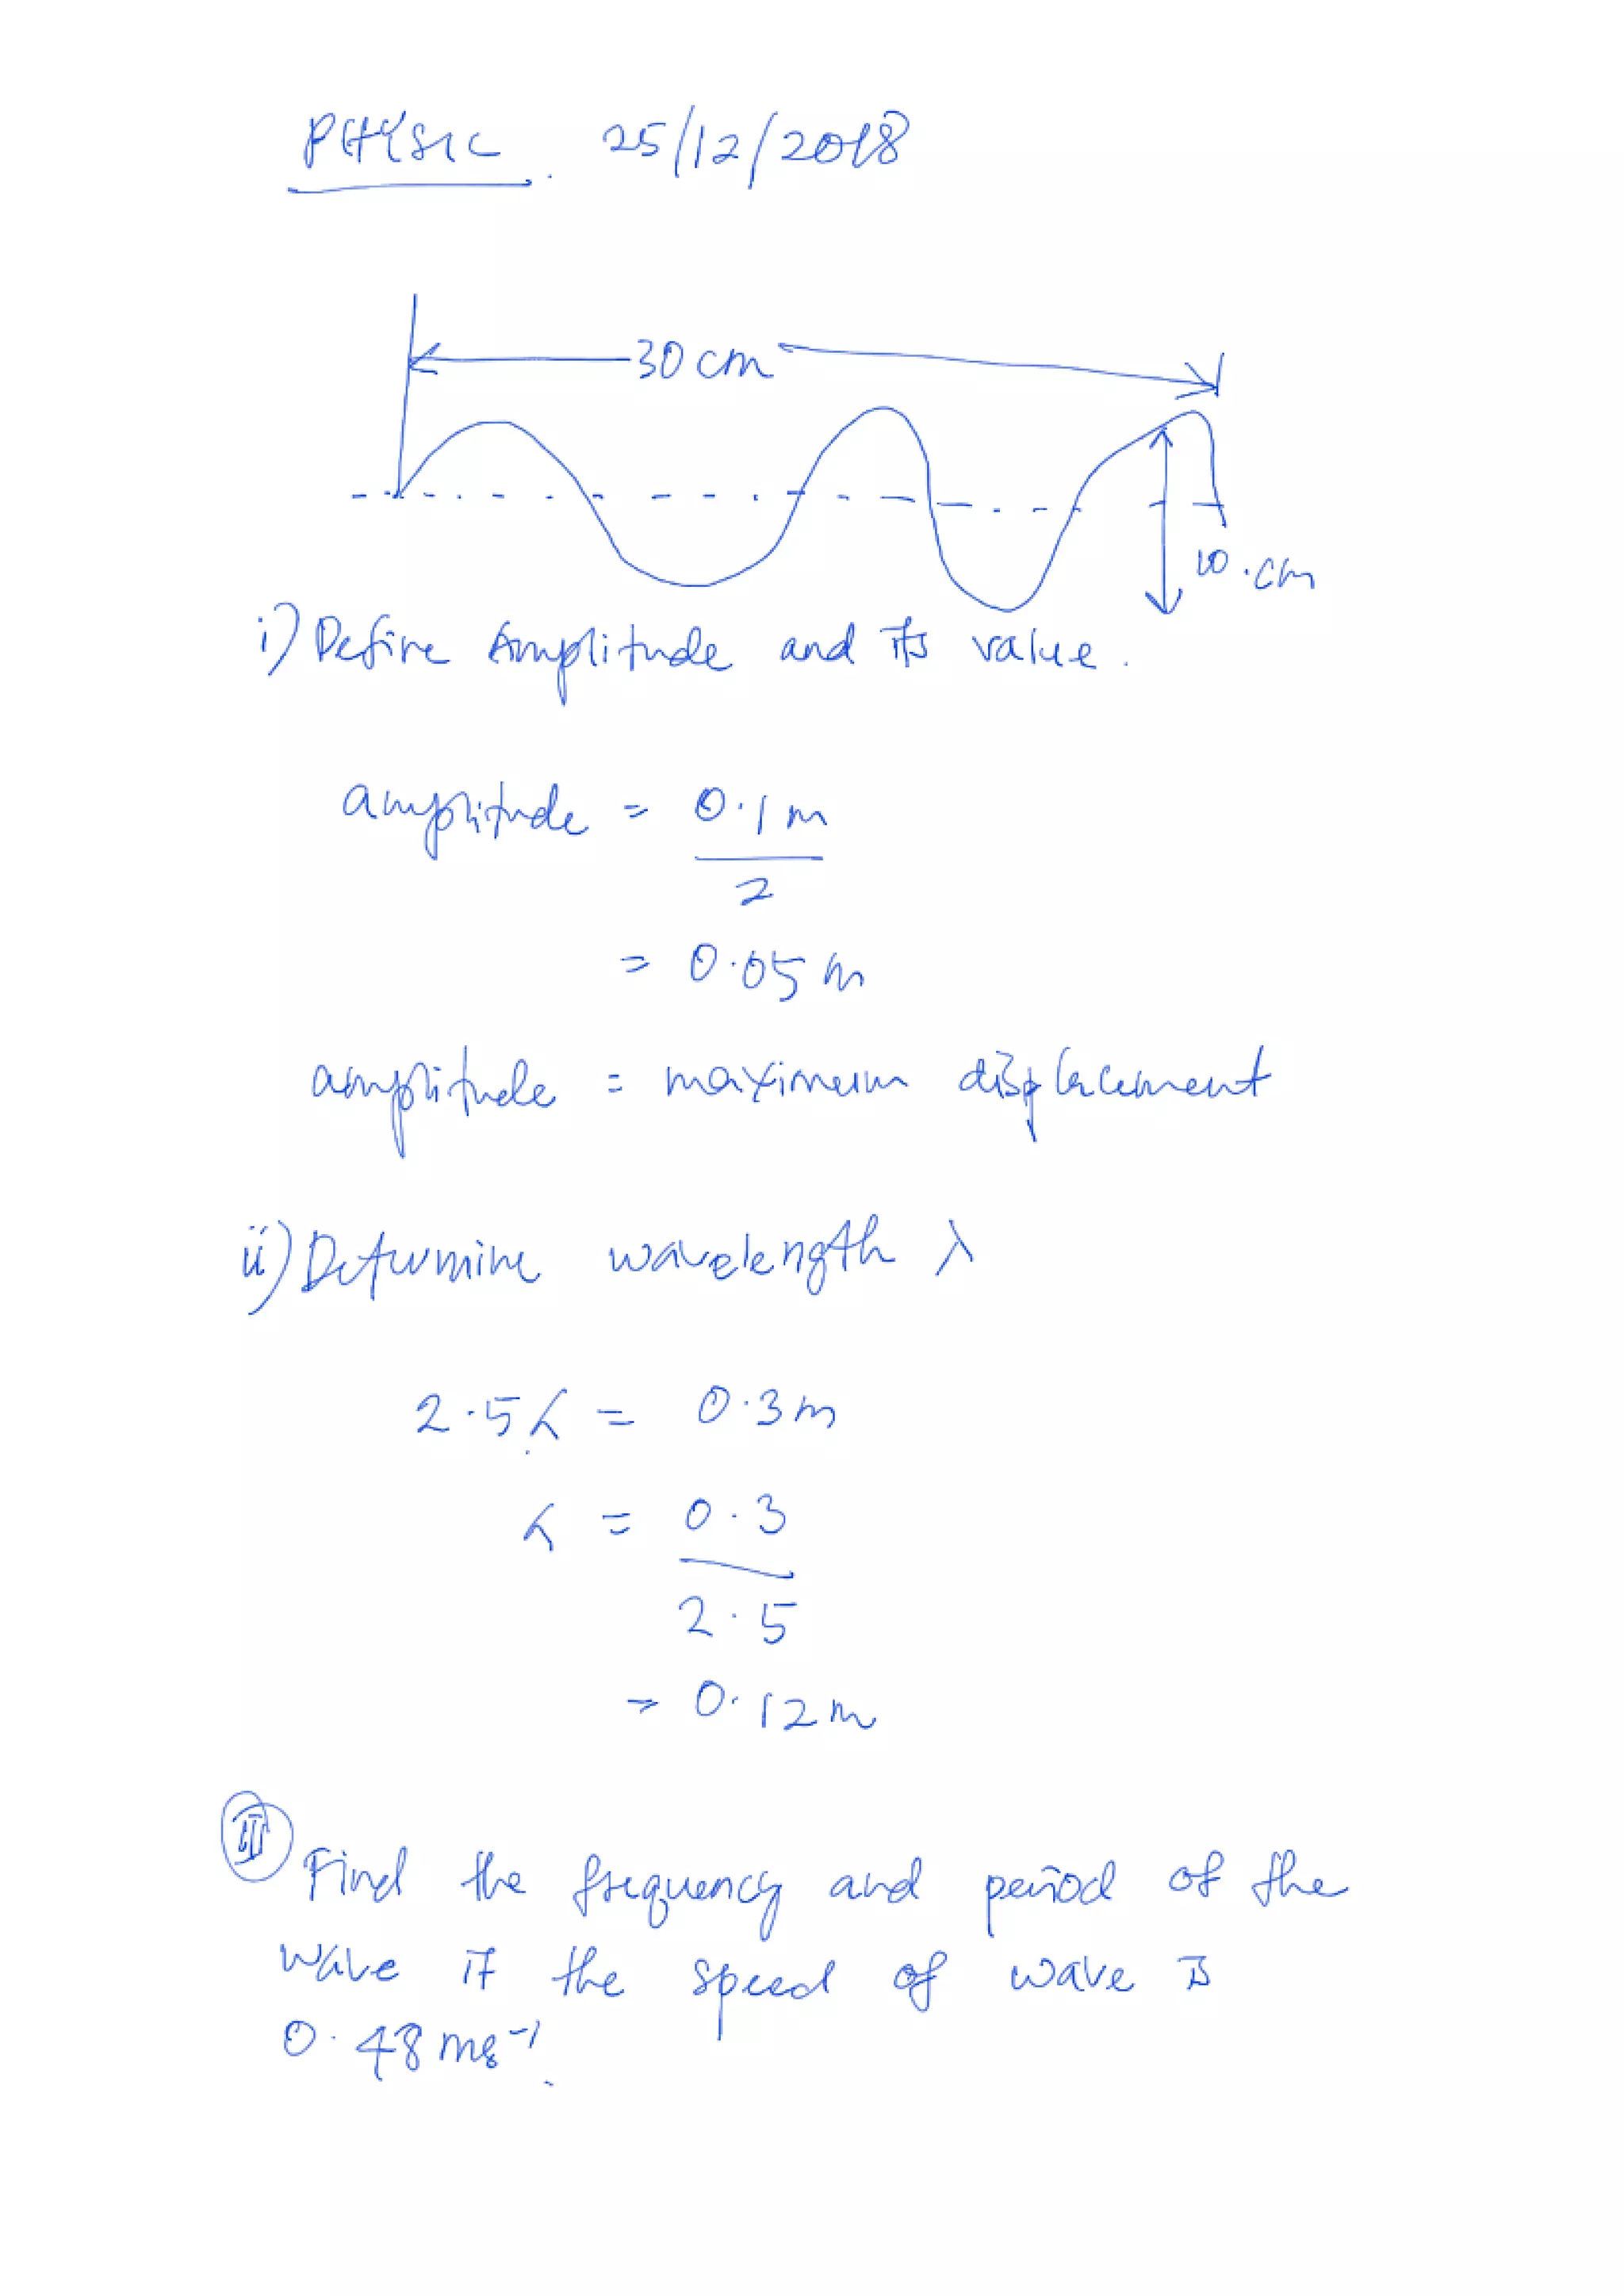 PHYSIC. 25/12/2018
30 cm
10.cm
i) Define Amplitude and its value.
amplitude = 0.1m
2
= 0.05m
amplitude = maximum displacement
ii) Determine wavelength λ
2.5λ = 0.3m
λ = 0.3
2.5
= 0.12m
III
Find the frequency and period of the
wave if the speed of wave is
0.48 ms⁻¹.